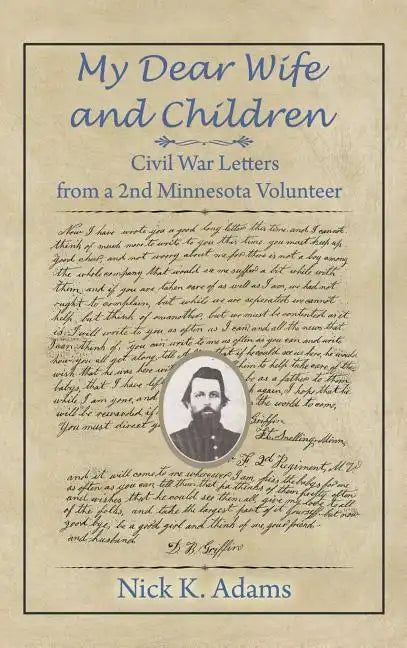 My Dear Wife
and Children
Civil War Letters
from a 2nd Minnesota Volunteer
Now I have wrote you a good long letter this time and I cannot
think of much more to write to you this time, you must keep up
good cheer, and not worry about me for there is not a boy among
the whole company that would see me suffer a bit while with
them, and if you are taken care of as well as I am, we had not
ought to complain, but while we are seperated we cannot
help, but think of oneanother, but we must be contented as it
is. I will write to you as often as I can and all the news that
I can think of. You can write to me as often as you can and write
how you all get along, tell if he could see us here, he would
wish that he was here wi them to help take care of the
babys, that I have left be as a father to them
while I am gone, and again, I hope that he
will be rewarded if the world to come,
You must direct y Griffin
Ft. Snelling, Minn.
Co. F 2d Regiment, M. V.
and it will come to me wherever I am. kiss the babys for me
as often as you can tell them that pa thinks of them pretty often
and wishes that he could see them all, give my love to all
of the folks, and take the largest part of it yourself, but now
good bye, be a good girl and think of me your friend
and husband
D. B. Griffin
Nick K. Adams